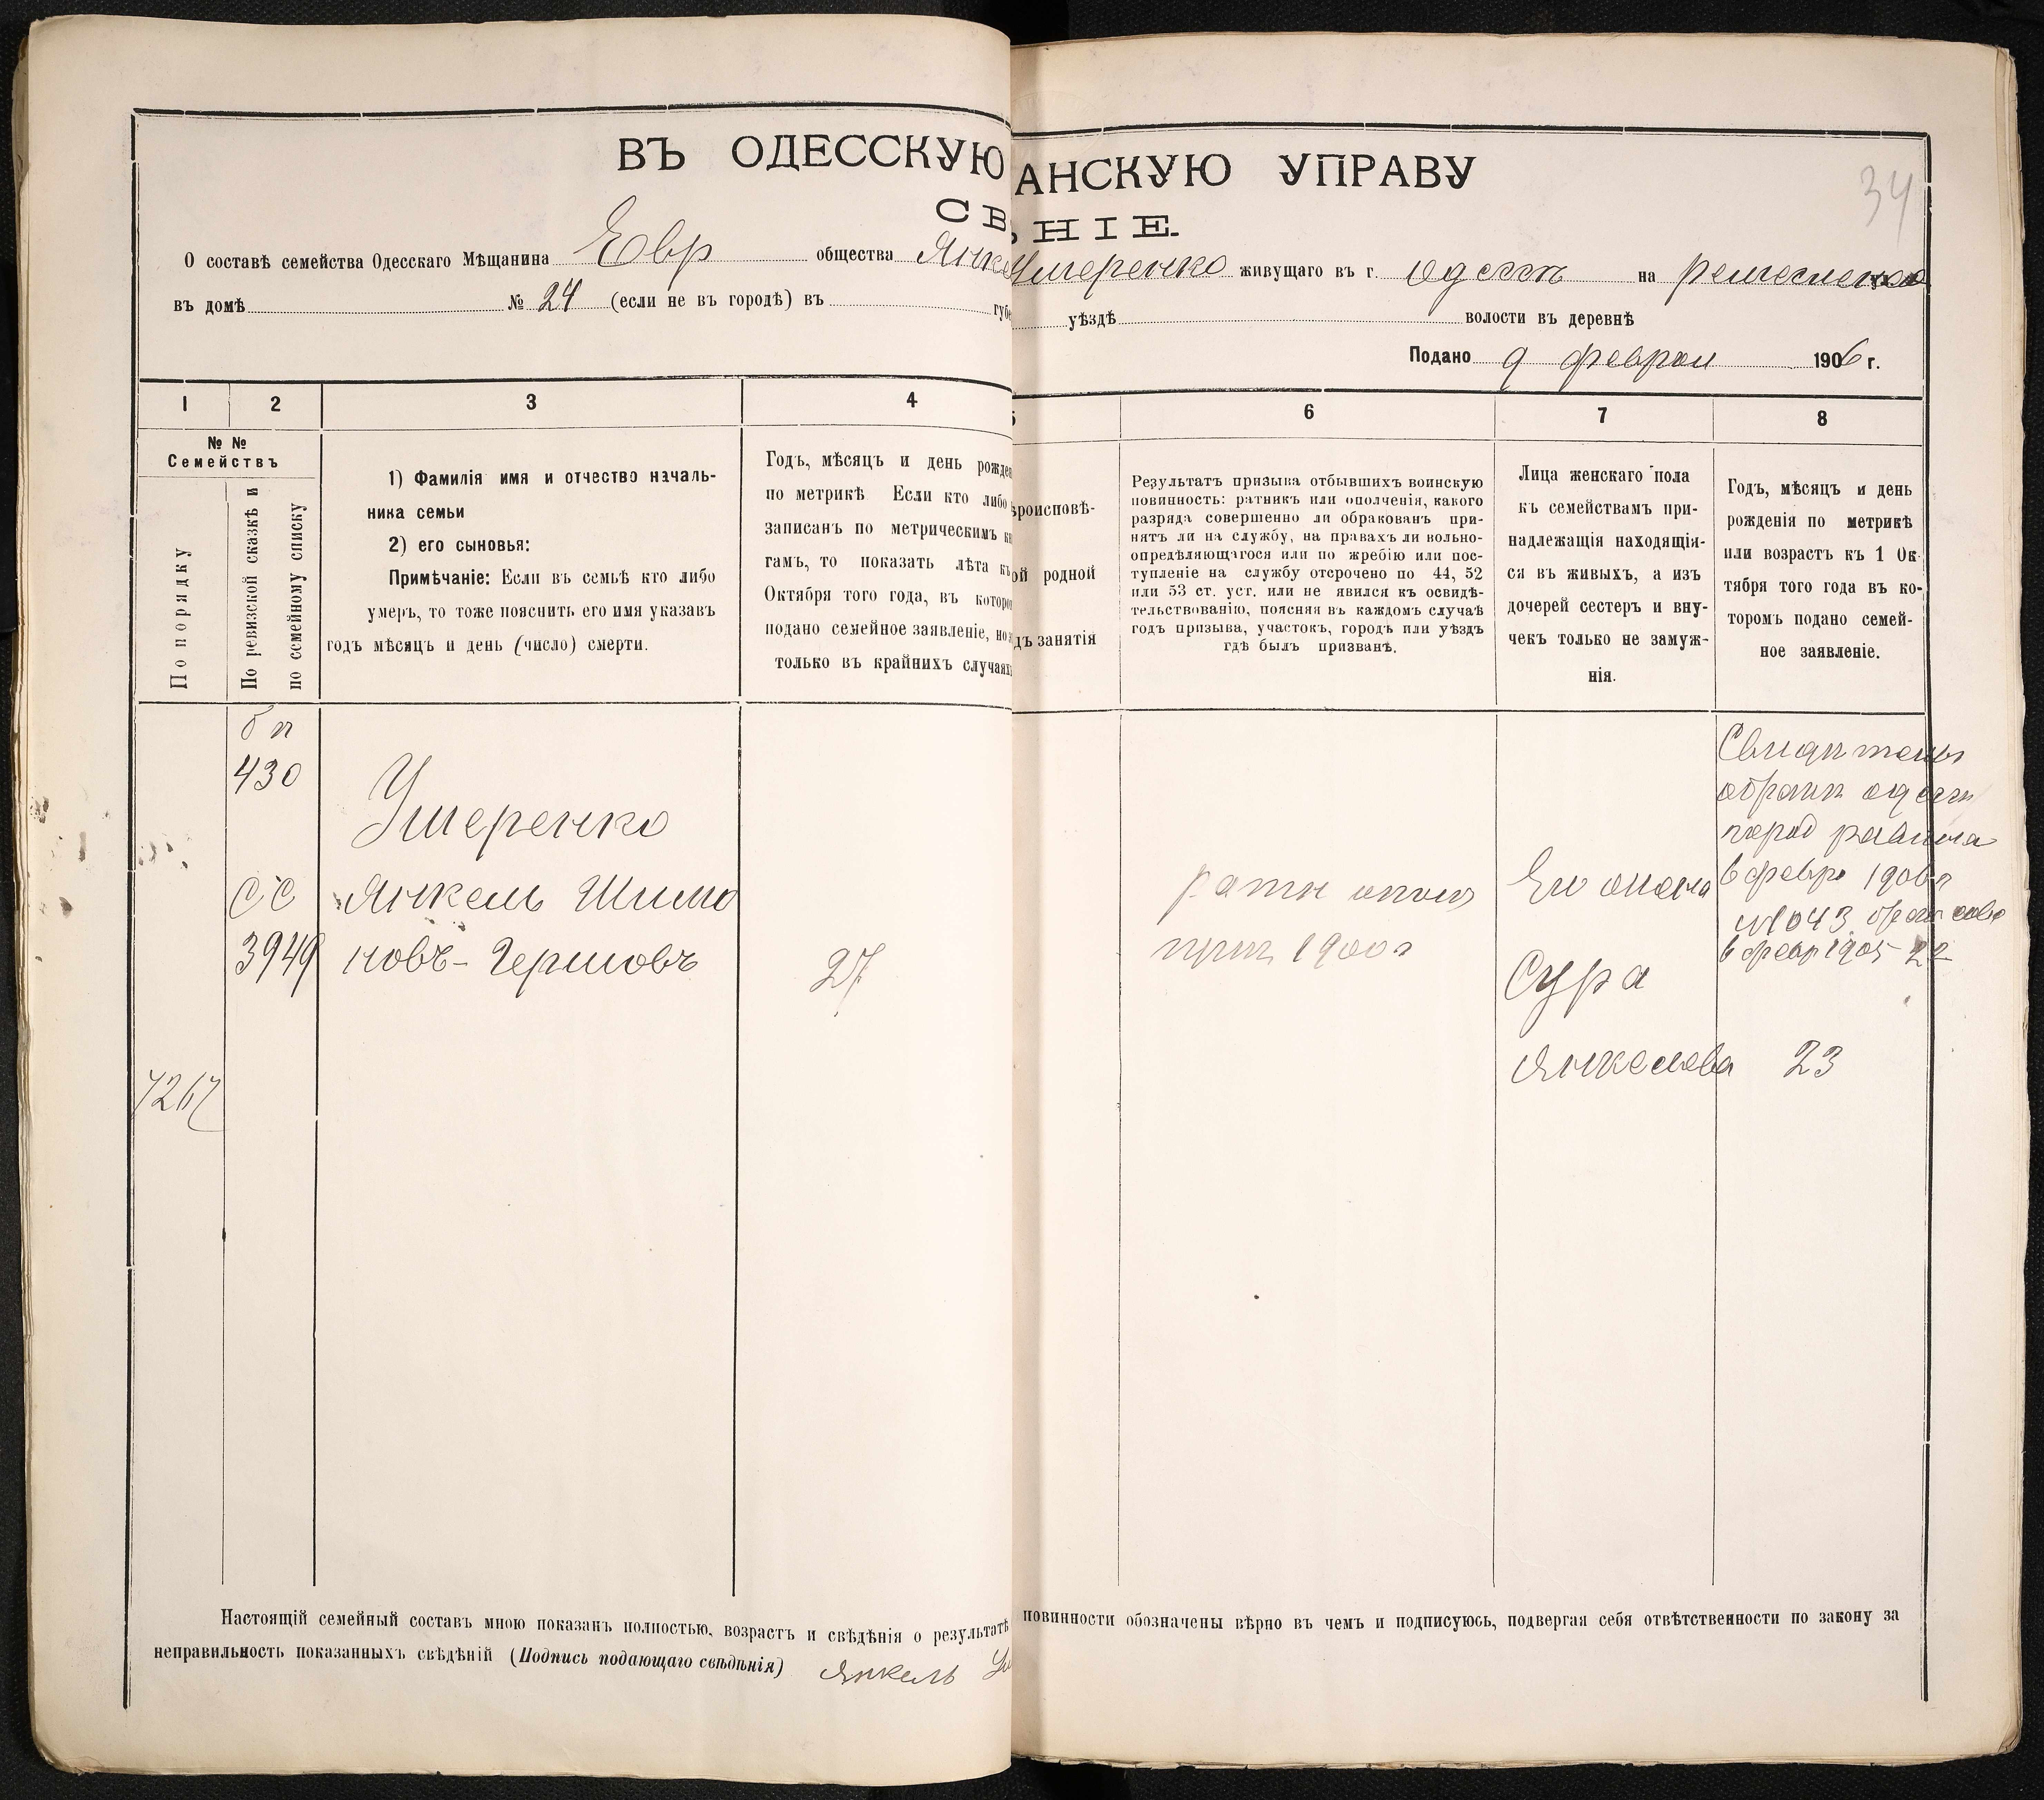 ВЪ ОДЕССКУЮ АНСКУЮ УПРАВУ
34
СВ ѢНІЕ.
О составѣ семейства Одесскаго Мѣщанина Евр общества Янке Ушеренко живущаго въ г. одессѣ на
въ домѣ № 24 (если не въ городѣ) въ губе уѣздѣ волости въ деревнѣ
Подано 9 феврал 1906 г.
1 2 3 4 5 6 7 8
№ №
Семействъ
По порядку
По ревизской сказкѣ и
по семейному списку
1) Фамилія имя и отчество началь-
ника семьи
2) его сыновья:
Примѣчаніе: Если въ семьѣ кто либо
умеръ, то тоже пояснить его имя указавъ
годъ мѣсяцъ и день (число) смерти.
Годъ, мѣсяцъ и день рожде
по метрикѣ Если кто либо
записанъ по метрическимъ кн
гамъ, то показать лѣта къ
Октября того года, въ которо
подано семейное заявленіе, но э
только въ крайнихъ случаях
ѣроисповѣ-
ой родной
дъ занятія
Результатъ призыва отбывшихъ воинскую
повинность: ратникъ или ополченія, какого
разряда совершенно ли обракованъ при-
нятъ ли на службу, на правахъ ли вольно-
опредѣляющагося или по жребію или пос-
тупленіе на службу отсрочено по 44, 52
или 53 ст. уст. или не явился къ освидѣ-
тельствованію, поясняя въ каждомъ случаѣ
годъ призыва, участокъ, городъ или уѣздъ
гдѣ былъ призванъ.
Лица женскаго пола
къ семействамъ при-
надлежащія находящія-
ся въ живыхъ, а изъ
дочерей сестеръ и вну-
чекъ только не замуж-
нія.
Годъ, мѣсяцъ и день
рожденія по метрикѣ
или возрастъ къ 1 Ок-
тября того года въ ко-
торомъ подано семей-
ное заявленіе.
б п
430
Ушеренко
с с Янкель Шимо
3949 новъ-Гершовъ
27
7267
ратн опол
приз 1900 г
Ег жена
Сура
Янкелева 23
Свидѣтель
о бракѣ одесск
город раввина
6 февр 1906 г
№1043
6 февр 1905
Настоящій семейный составъ мною показанъ полностью, возрастъ и свѣдѣнія о результатѣ повинности обозначены вѣрно въ чемъ и подписуюсь, подвергая себя отвѣтственности по закону за
неправильность показанныхъ свѣдѣній (Подпись подающаго свѣдѣнія) Янкель Уш